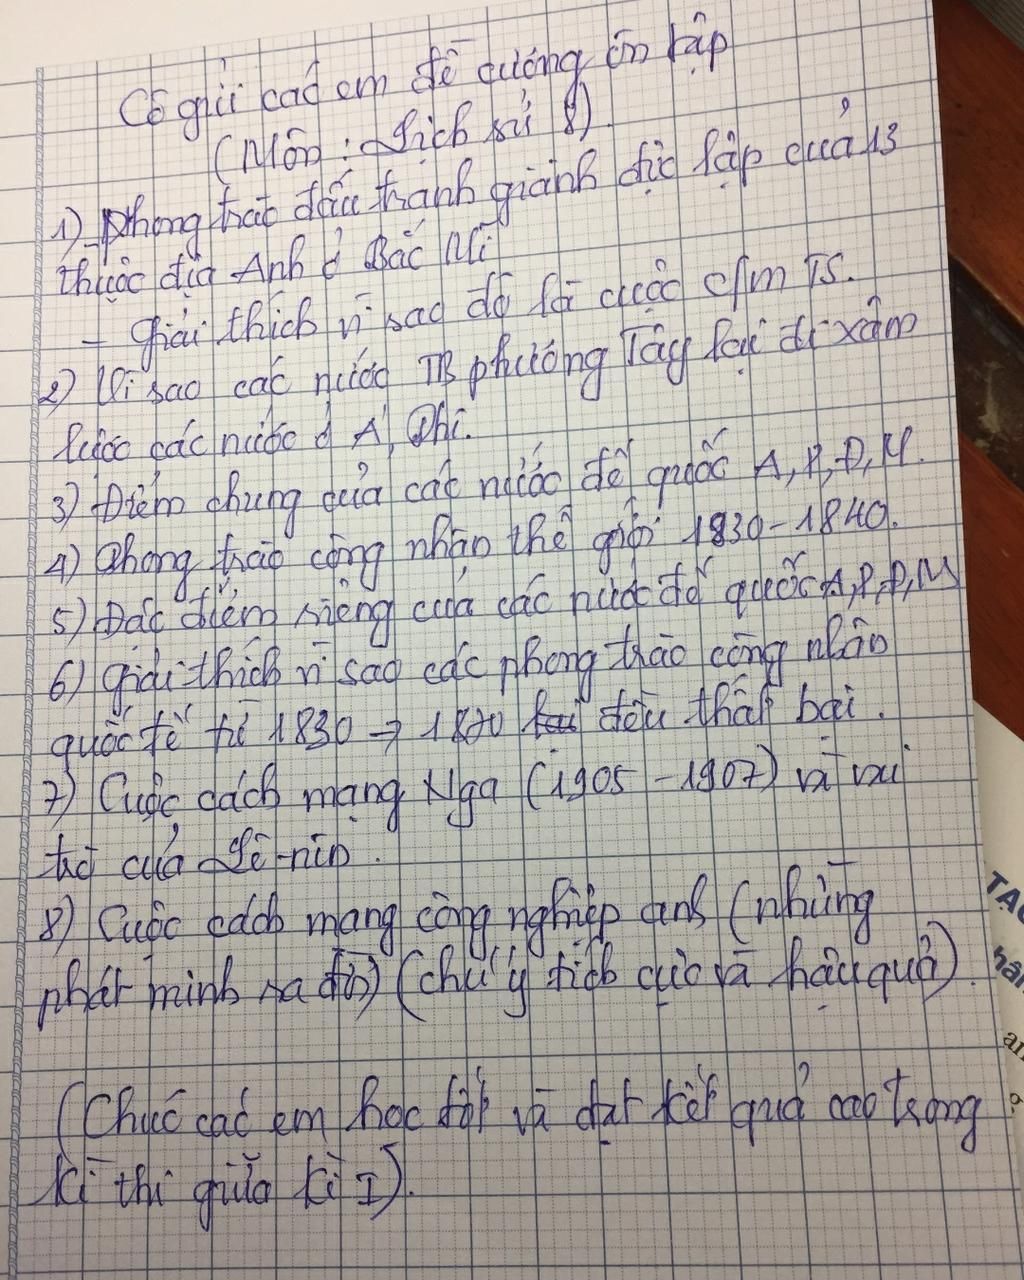 Cô gửi các em đề cương ôn tập
(Môn: Lịch sử 8)
1) - Phong trào đấu tranh giành độc lập của 13
thuộc địa Anh ở Bắc Mĩ
- Giải thích vì sao đó là cuộc c/m TS.
2) Vì sao các nước TB phương Tây lại đi xâm
lược các nước ở Á, Phi.
3) Điểm chung của các nước đế quốc A, P, Đ, M.
4) Phong trào công nhân thế giới 1830-1840.
5) Đặc điểm riêng của các nước đế quốc A, P, Đ, M
6) Giải thích vì sao các phong trào công nhân
quốc tế từ 1830 → 1870 đều thất bại.
7) Cuộc cách mạng Nga (1905-1907) và vai
trò của Lê-nin.
8) Cuộc cách mạng công nghiệp anh (những
phát minh ra đời) (chú ý tích cực và hậu quả).
(Chúc các em học tốt và đạt kết quả cao trong
kì thi giữa kì I).
TẠO